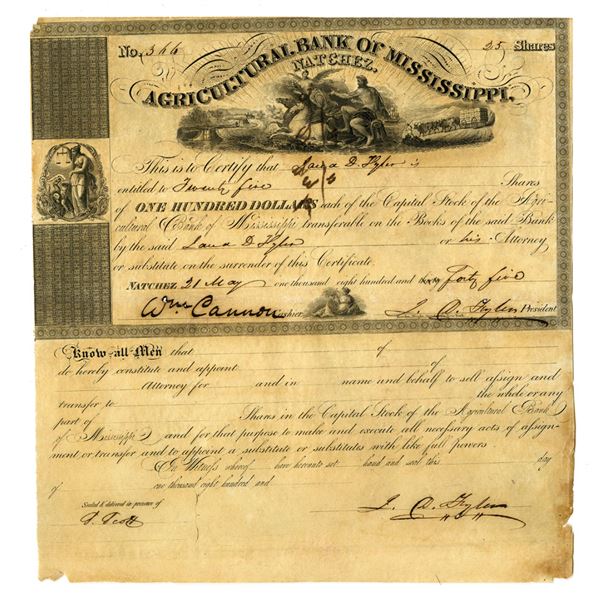 No. 366 25 Shares
AGRICULTURAL BANK OF MISSISSIPPI.
NATCHEZ.
This is to Certify that Laura D. Tyler is
entitled to Twenty five Shares
of ONE HUNDRED DOLLARS each of the Capital Stock of the Agri-
cultural Bank of Mississippi transferable on the Books of the said Bank
by the said Laura D. Tyler or his Attorney
or substitute on the surrender of this Certificate.
NATCHEZ 21 May one thousand eight hundred and thirty Forty five
Wm Cannon Cashier President
Know all Men that of
do hereby constitute and appoint of
Attorney for and in name and behalf to sell assign and
transfer to the whole or any
part of Shares in the Capital Stock of the Agricultural Bank
of Mississippi and for that purpose to make and execute all necessary acts of assign-
ment or transfer and to appoint a substitute or substitutes with like full powers
In Witness whereof have hereunto set hand and seal this day
of one thousand eight hundred and
Sealed & delivered in presence of
Scott